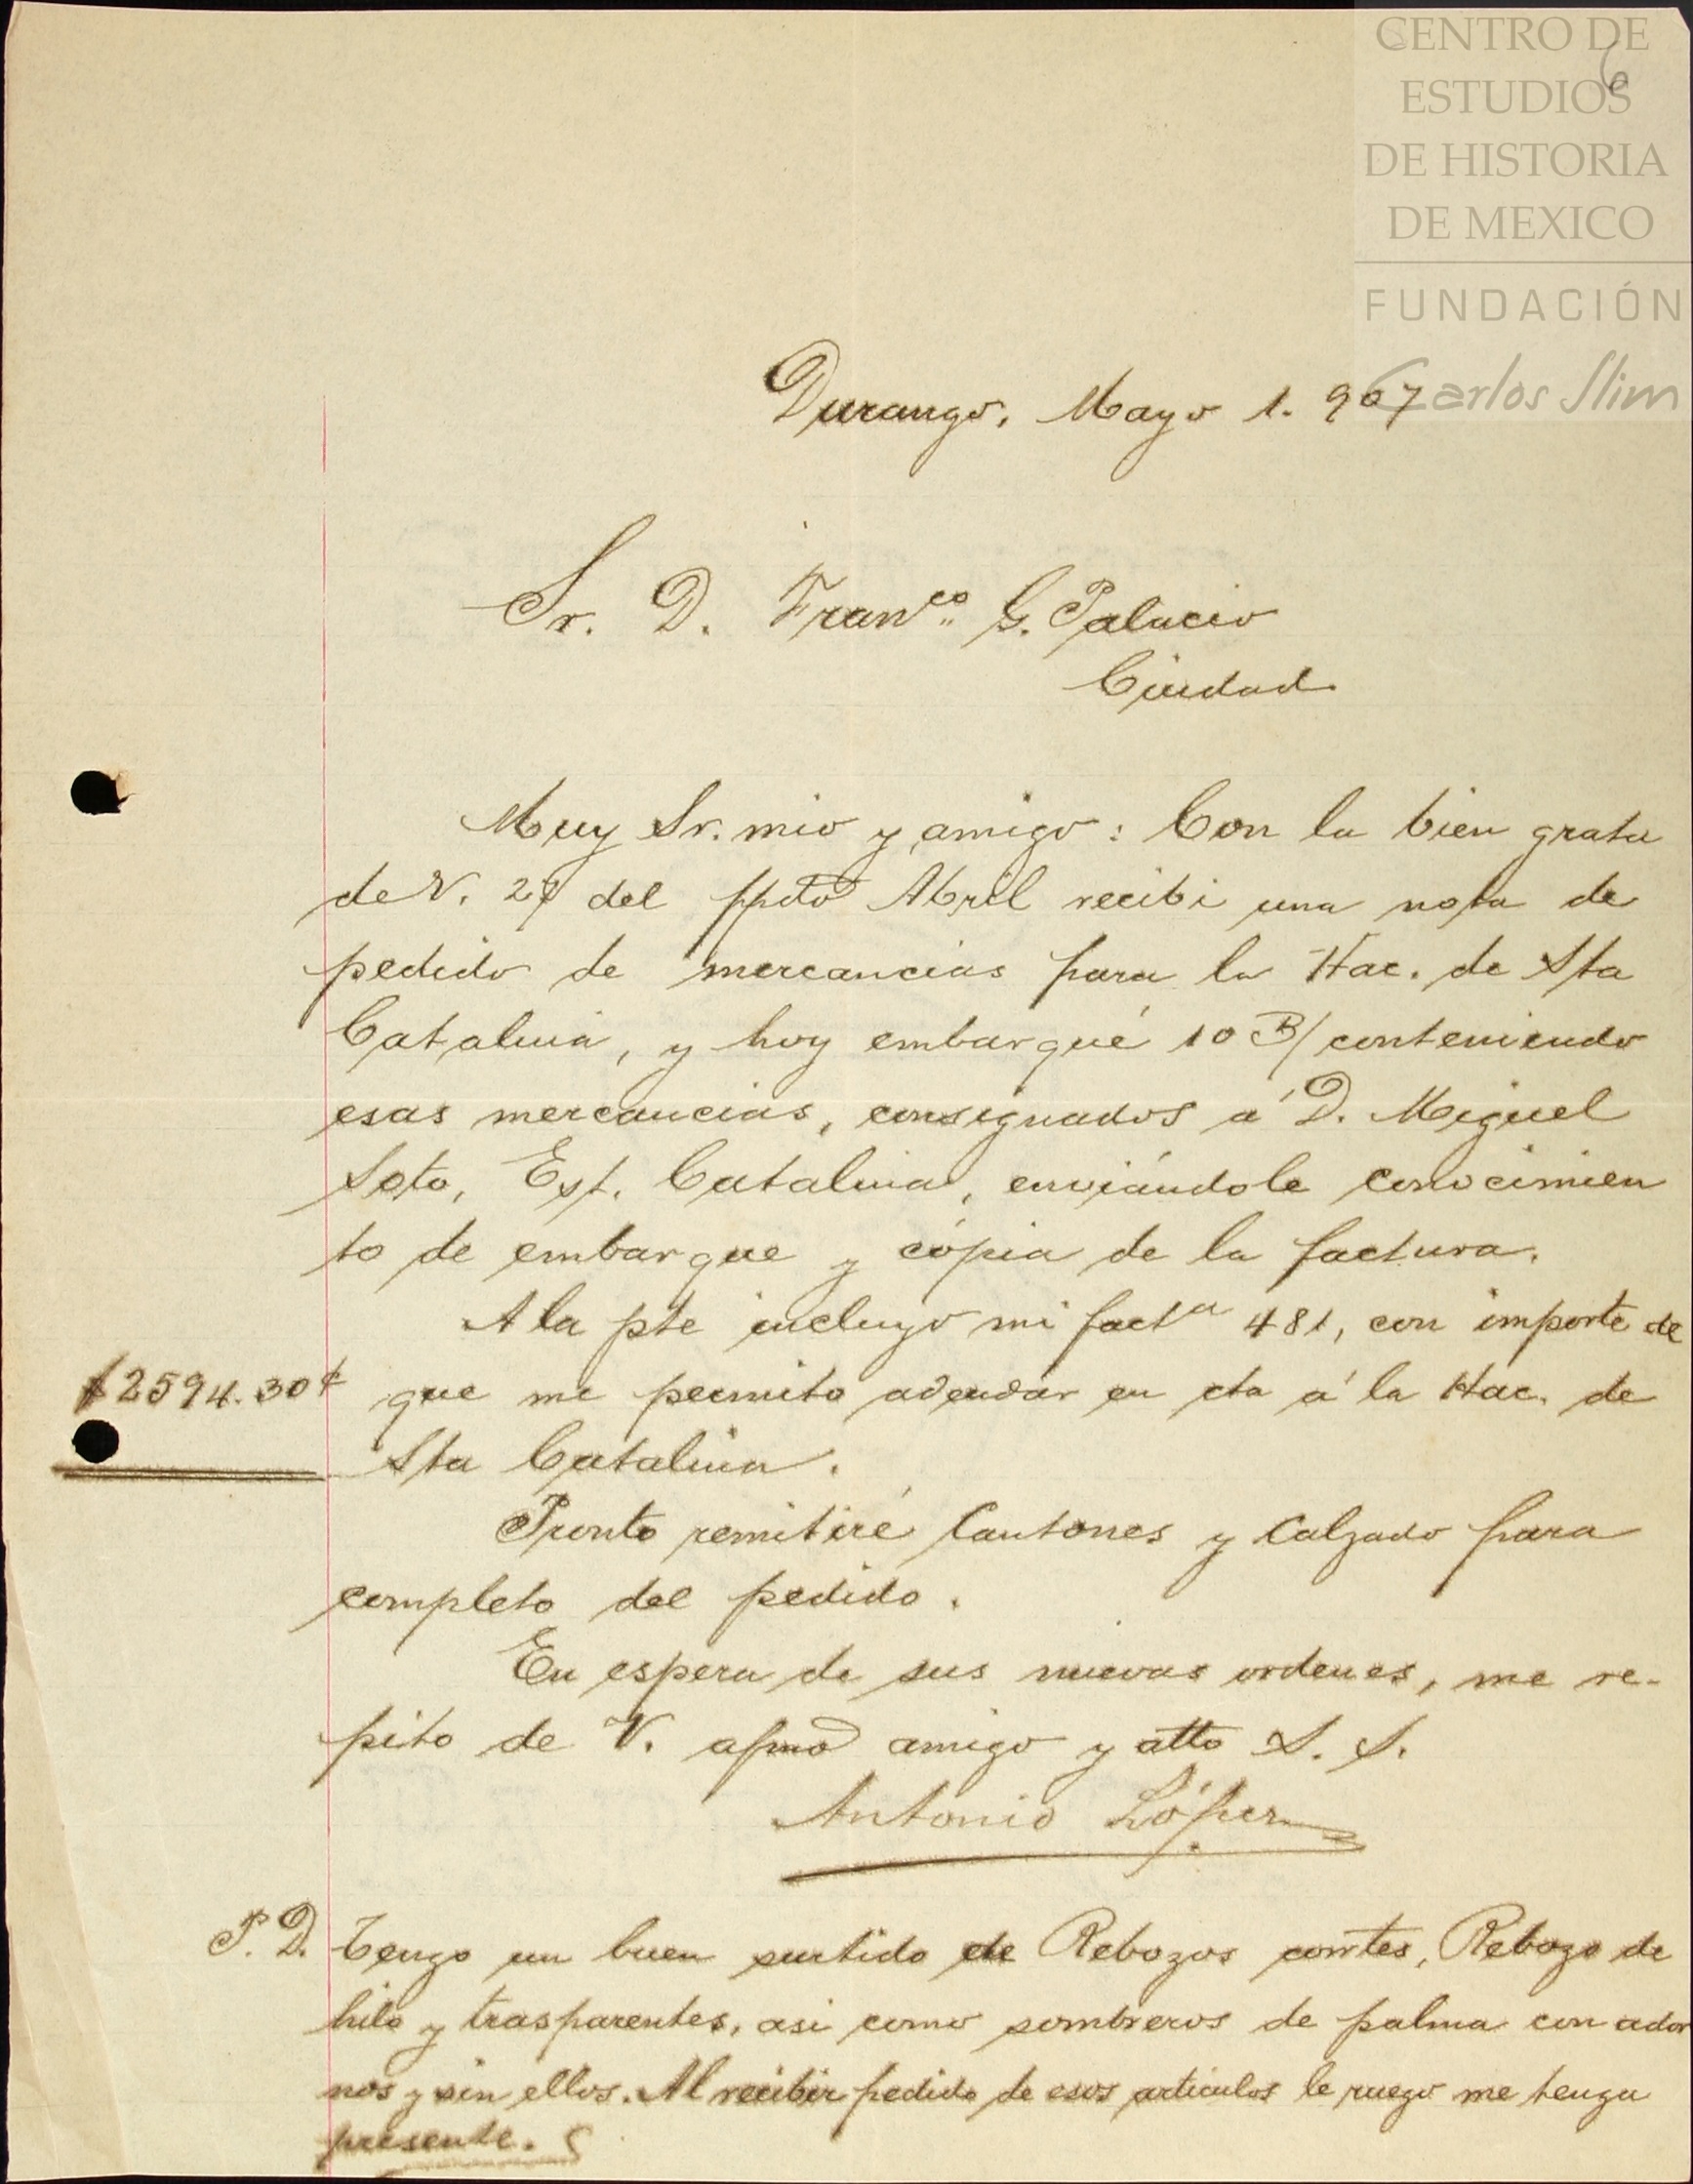 CENTRO DE
ESTUDIOS
DE HISTORIA
DE MEXICO
FUNDACIÓN
Carlos Slim
6
Durango, Mayo 1. 907
Sr. D. Franco G. Palacio
Ciudad.
Muy Sr. mio y amigo: Con la bien grata
de V. 27 del ppdo Abril recibi una nota de
pedido de mercancias para la Hac. de Sta
Catalina, y hoy embarqué 10 B/ conteniendo
esas mercancias, consignados á D. Miguel
Soto, Est. Catalina, enviándole conocimien
to de embarque y cópia de la factura.
A la pte incluyo mi facta 481, con importe de
$2594.30¢ que me permito adeudar en cta á la Hac. de
Sta Catalina.
Pronto remitiré Cantones y Calzado para
completo del pedido.
En espera de sus nuevas ordenes, me re-
pito de V. afmo amigo y atto S. S.
Antonio López
P. D. Tengo un buen surtido de Rebozos corrtes, Rebozo de
hilo y trasparentes, asi como sombreros de palma con ador
nos y sin ellos. Al recibir pedido de esos articulos le ruego me tenga
presente.